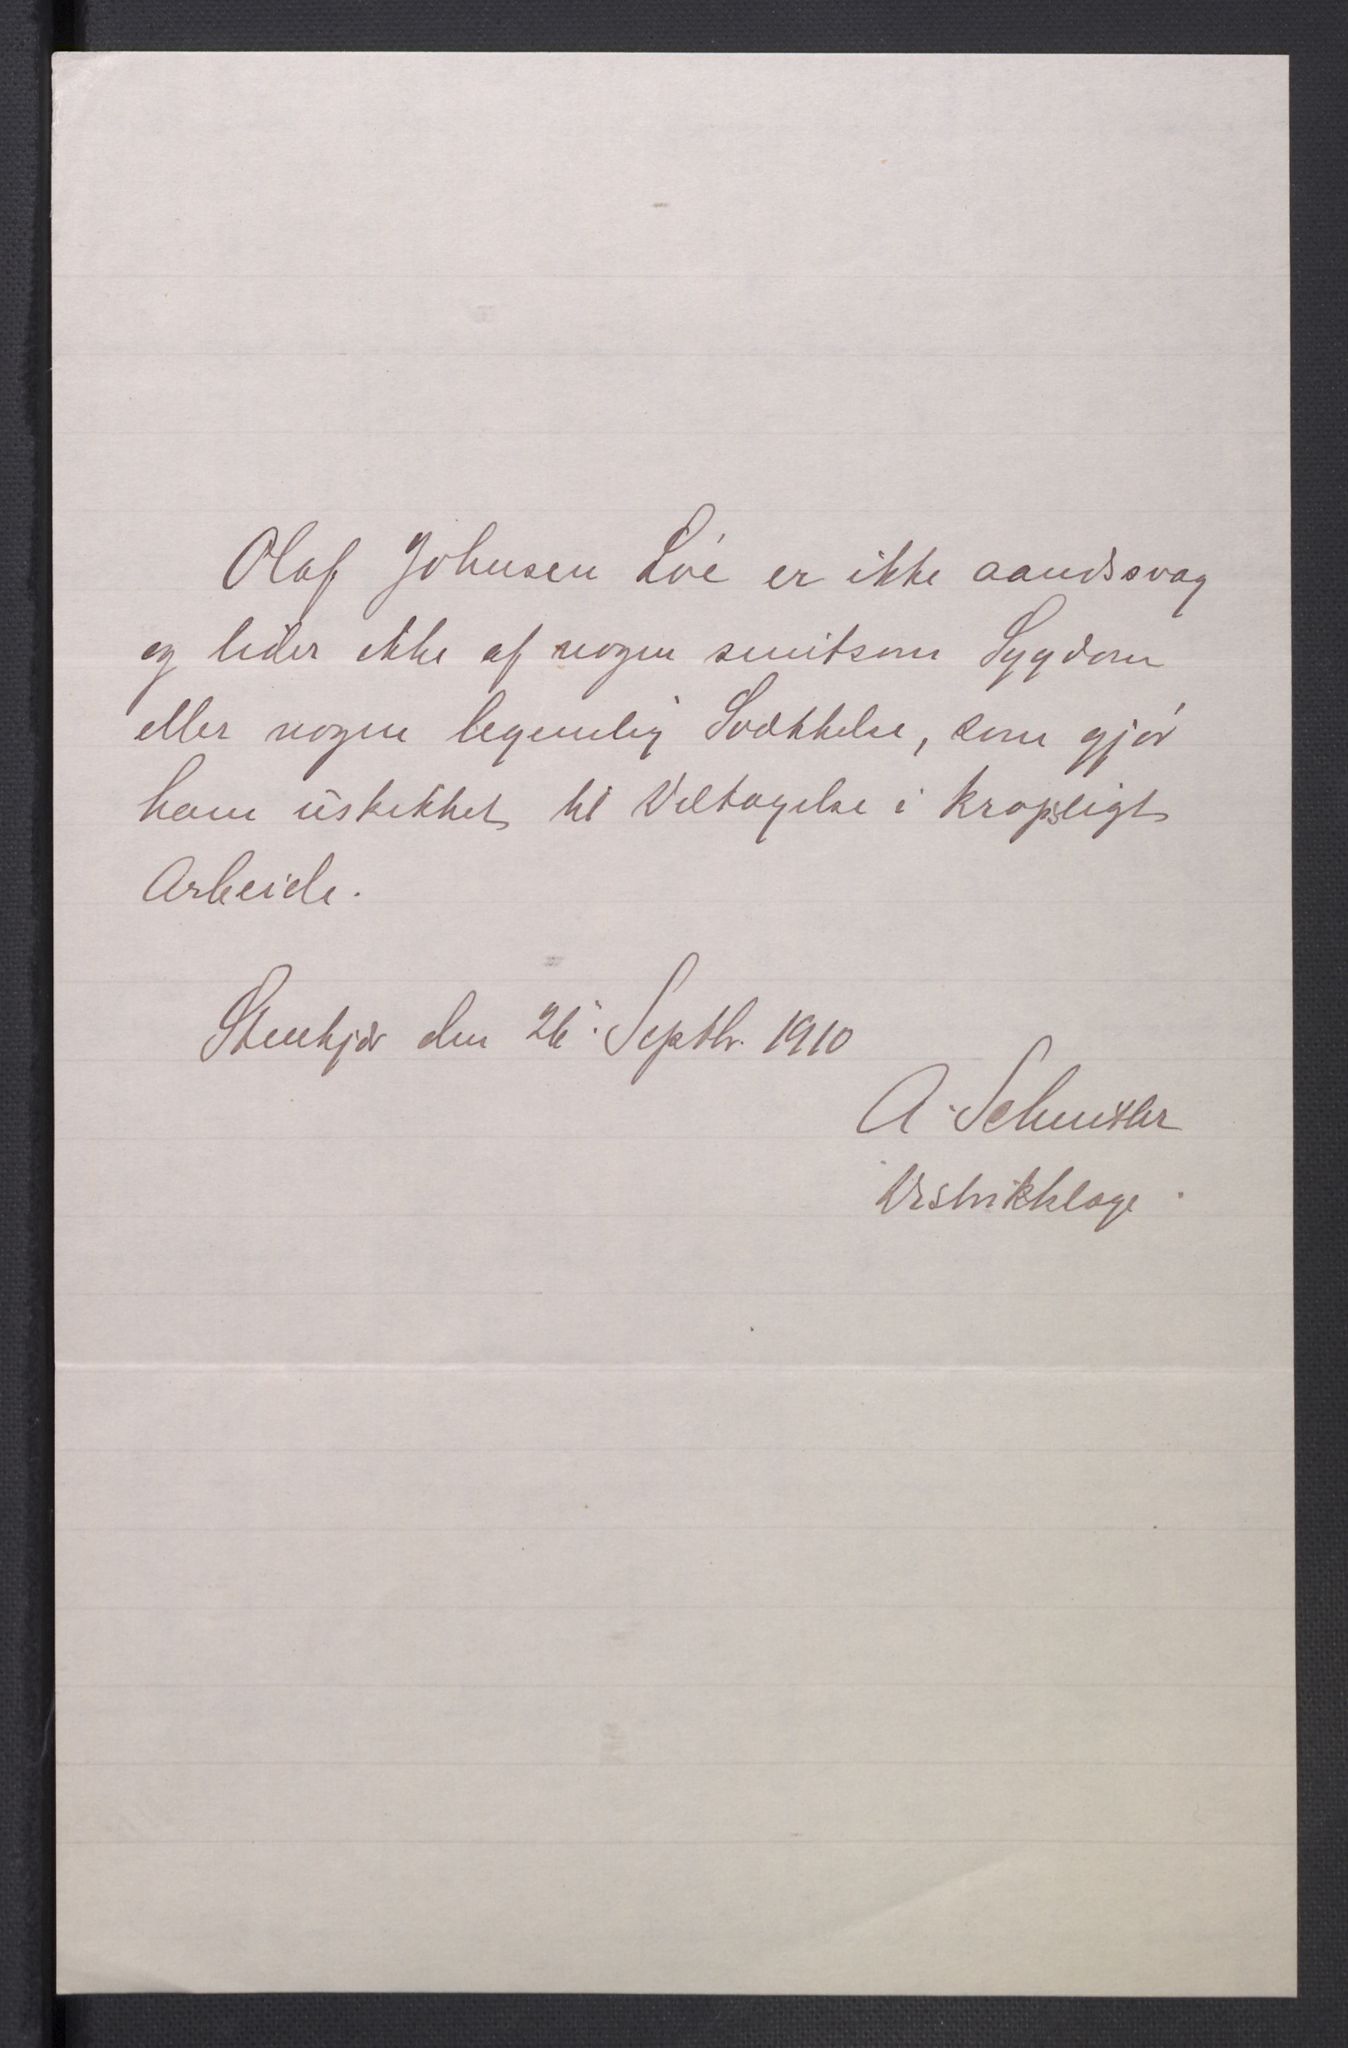 Olaf Johnsen Lóe er ikke aandssvag
og lider ikke af nogen smitsom Sygdom
eller nogen legemlig Svækkelse, som gjór
ham uskikket til Deltagelse i kropsligt
Arbeide.
Stenkjær den 26. Septbr. 1910
A. Schnitler
Distriktslæge.